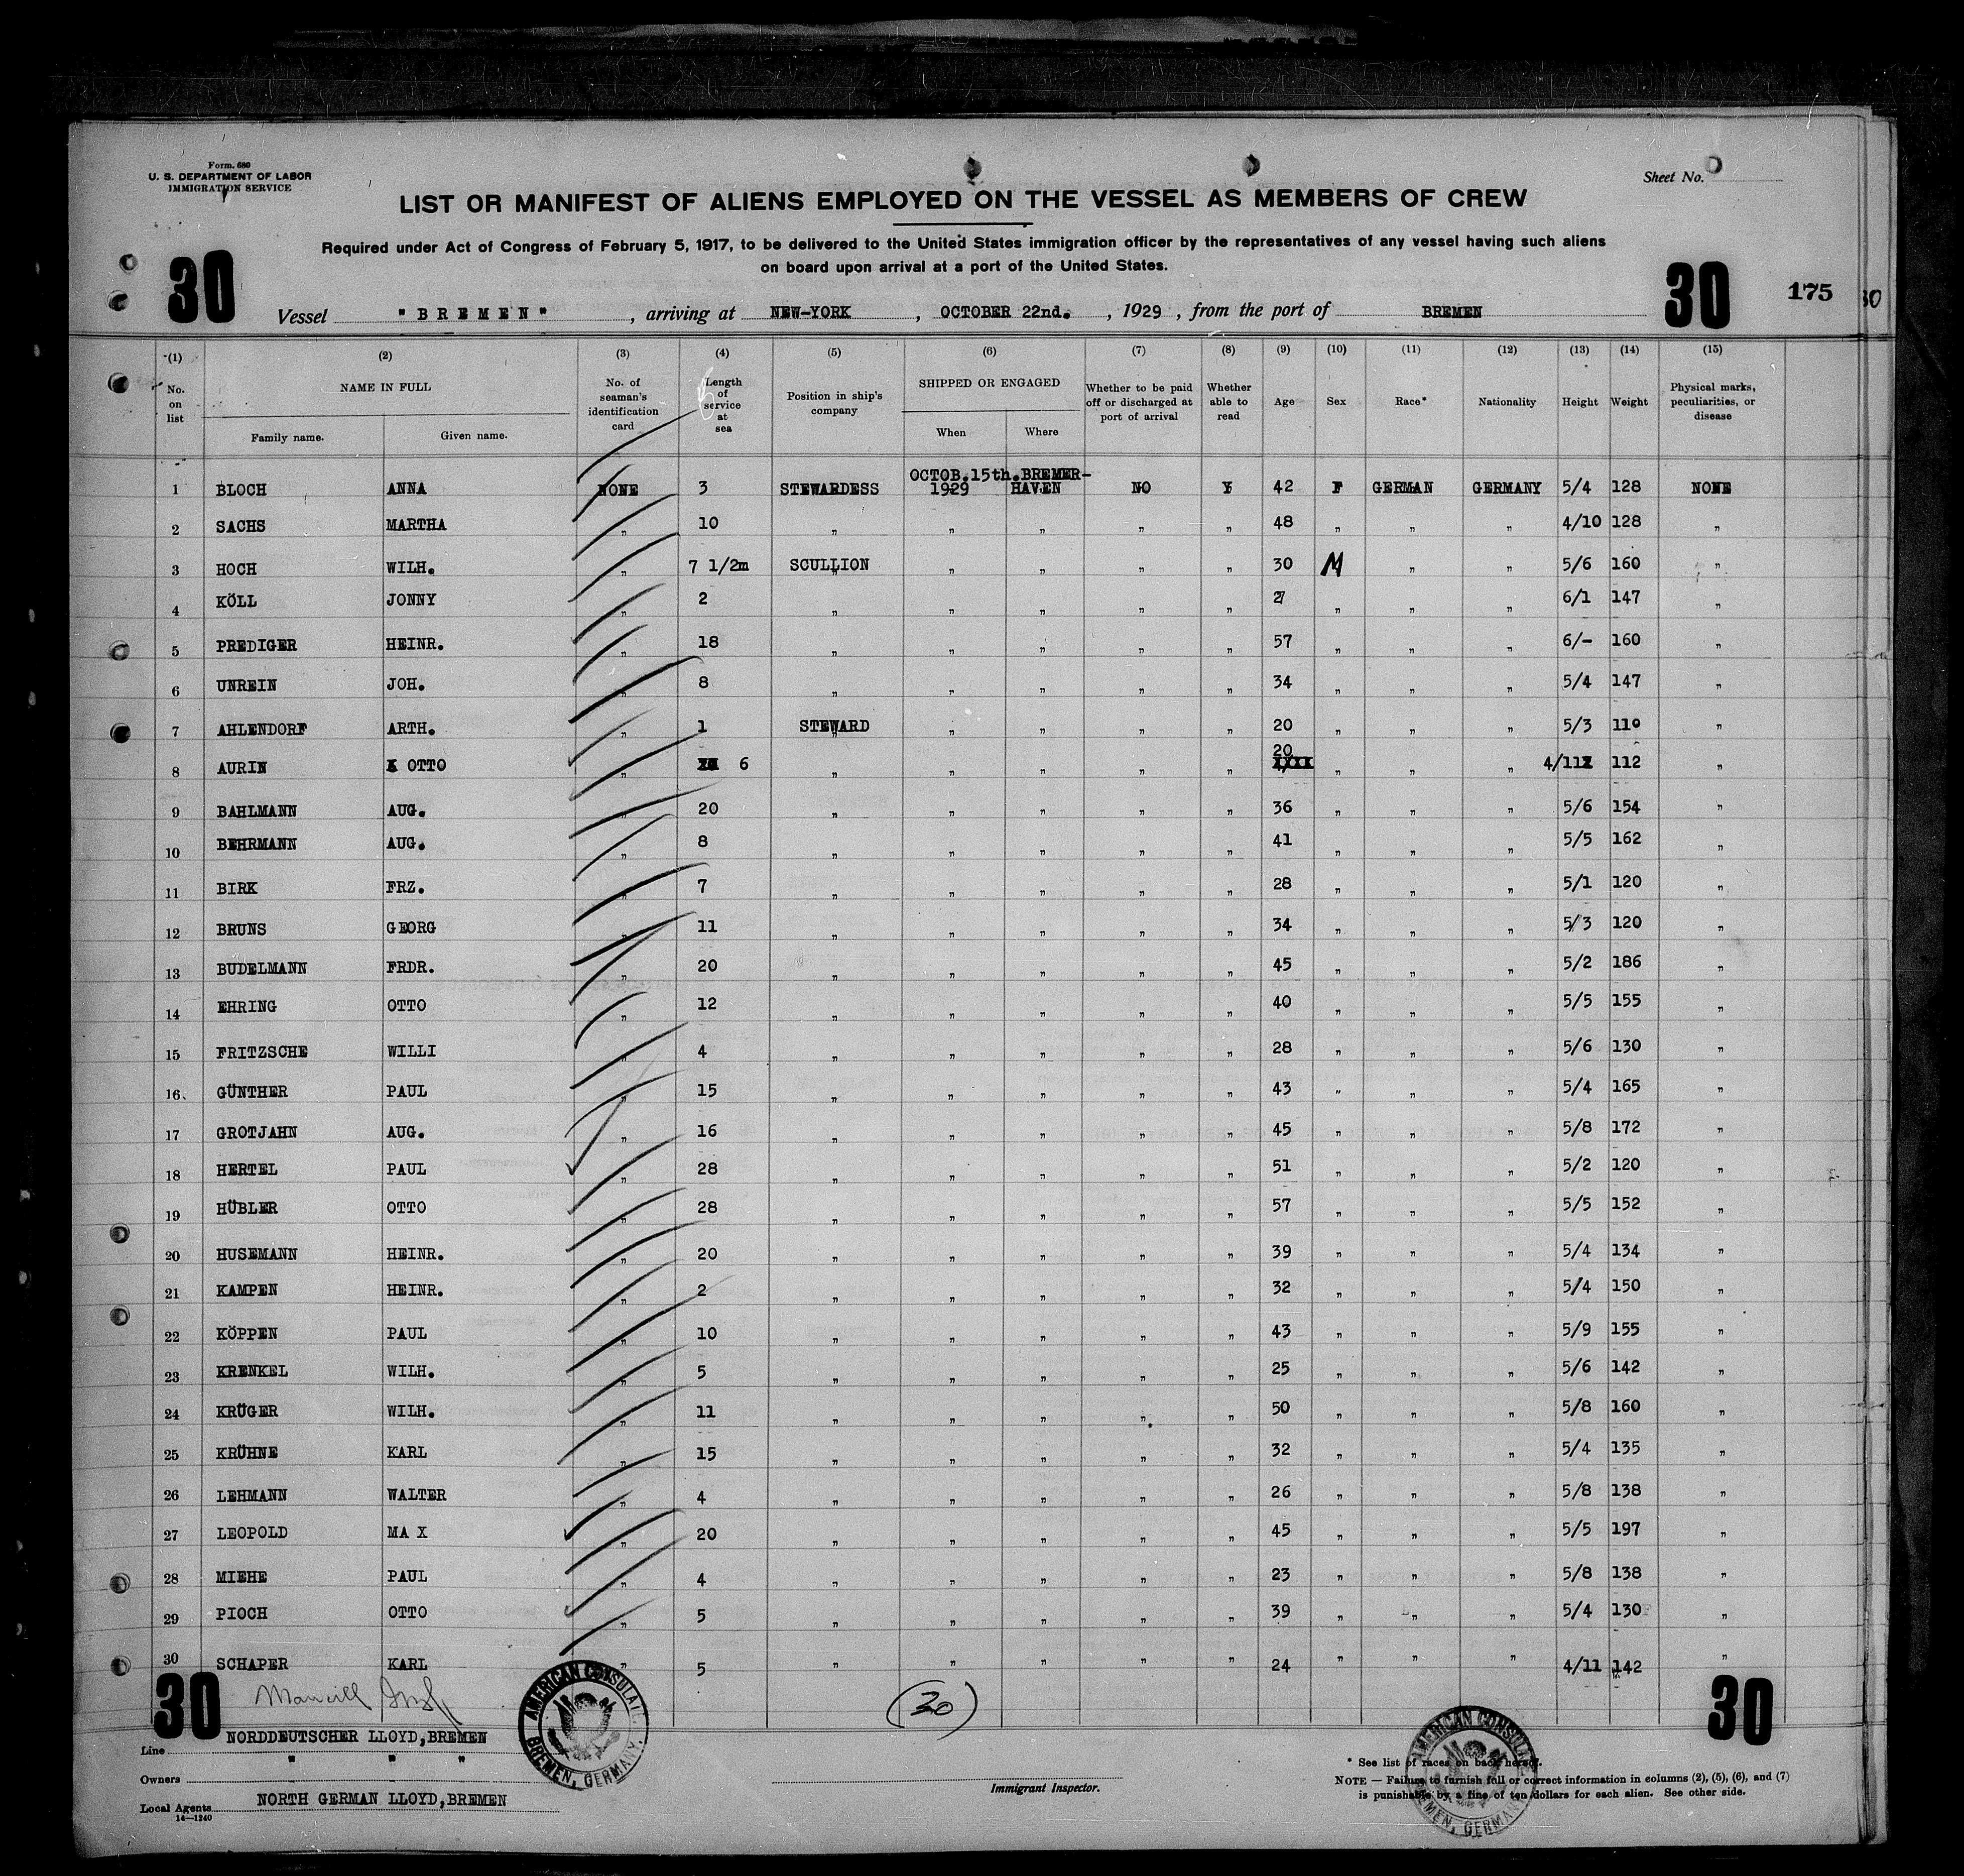 Form. 680
U. S. DEPARTMENT OF LABOR
IMMIGRATION SERVICE
Sheet No.
LIST OR MANIFEST OF ALIENS EMPLOYED ON THE VESSEL AS MEMBERS OF CREW
Required under Act of Congress of February 5, 1917, to be delivered to the United States immigration officer by the representatives of any vessel having such aliens
on board upon arrival at a port of the United States.
30 30 175 30
Vessel "BREMEN", arriving at NEW-YORK, OCTOBER 22nd., 1929, from the port of BREMEN
(1) (2) (3) (4) (5) (6) (7) (8) (9) (10) (11) (12) (13) (14) (15)
No. on list NAME IN FULL Family name. Given name. No. of seaman's identification card Length of service at sea Position in ship's company SHIPPED OR ENGAGED When Where Whether to be paid off or discharged at port of arrival Whether able to read Age Sex Race* Nationality Height Weight Physical marks, peculiarities, or disease
OCTOB.15th.BREMER-
1 BLOCH ANNA NONE 3 STEWARDESS 1929 HAVEN NO Y 42 F GERMAN GERMANY 5/4 128 NONE
2 SACHS MARTHA " 10 " " " " " 48 " " " 4/10 128 "
3 HOCH WILH. " 7 1/2m SCULLION " " " " 30 M " " 5/6 160 "
4 KÖLL JONNY " 2 " " " " " 27 " " " 6/1 147 "
5 PREDIGER HEINR. " 18 " " " " " 57 " " " 6/- 160 "
6 UNREIN JOH. " 8 " " " " " 34 " " " 5/4 147 "
7 AHLENDORF ARTH. " 1 STEWARD " " " " 20 " " " 5/3 110 "
8 AURIN OTTO " 6 " " " " " 20 " " " 4/11 112 "
9 BAHLMANN AUG. " 20 " " " " " 36 " " " 5/6 154 "
10 BEHRMANN AUG. " 8 " " " " " 41 " " " 5/5 162 "
11 BIRK FRZ. " 7 " " " " " 28 " " " 5/1 120 "
12 BRUNS GEORG " 11 " " " " " 34 " " " 5/3 120 "
13 BUDELMANN FRDR. " 20 " " " " " 45 " " " 5/2 186 "
14 EHRING OTTO " 12 " " " " " 40 " " " 5/5 155 "
15 FRITZSCHE WILLI " 4 " " " " " 28 " " " 5/6 130 "
16 GÜNTHER PAUL " 15 " " " " " 43 " " " 5/4 165 "
17 GROTJAHN AUG. " 16 " " " " " 45 " " " 5/8 172 "
18 HERTEL PAUL " 28 " " " " " 51 " " " 5/2 120 "
19 HÜBLER OTTO " 28 " " " " " 57 " " " 5/5 152 "
20 HUSEMANN HEINR. " 20 " " " " " 39 " " " 5/4 134 "
21 KAMPEN HEINR. " 2 " " " " " 32 " " " 5/4 150 "
22 KÖPPEN PAUL " 10 " " " " " 43 " " " 5/9 155 "
23 KRENKEL WILH. " 5 " " " " " 25 " " " 5/6 142 "
24 KRÜGER WILH. " 11 " " " " " 50 " " " 5/8 160 "
25 KRÜHNE KARL " 15 " " " " " 32 " " " 5/4 135 "
26 LEHMANN WALTER " 4 " " " " " 26 " " " 5/8 138 "
27 LEOPOLD MA X " 20 " " " " " 45 " " " 5/5 197 "
28 MIEHE PAUL " 4 " " " " " 23 " " " 5/8 138 "
29 PIOCH OTTO " 5 " " " " " 39 " " " 5/4 130 "
30 SCHAPER KARL " 5 " " " " " 24 " " " 4/11 142 "
30 (30) 30
AMERICAN CONSULATE BREMEN, GERMANY.
AMERICAN CONSULATE BREMEN, GERMANY.
Line NORDDEUTSCHER LLOYD,BREMEN
Owners " " "
Local Agents NORTH GERMAN LLOYD,BREMEN
14—1240
Immigrant Inspector.
* See list of races on back hereof.
NOTE — Failure to furnish full or correct information in columns (2), (5), (6), and (7)
is punishable by a fine of ten dollars for each alien. See other side.